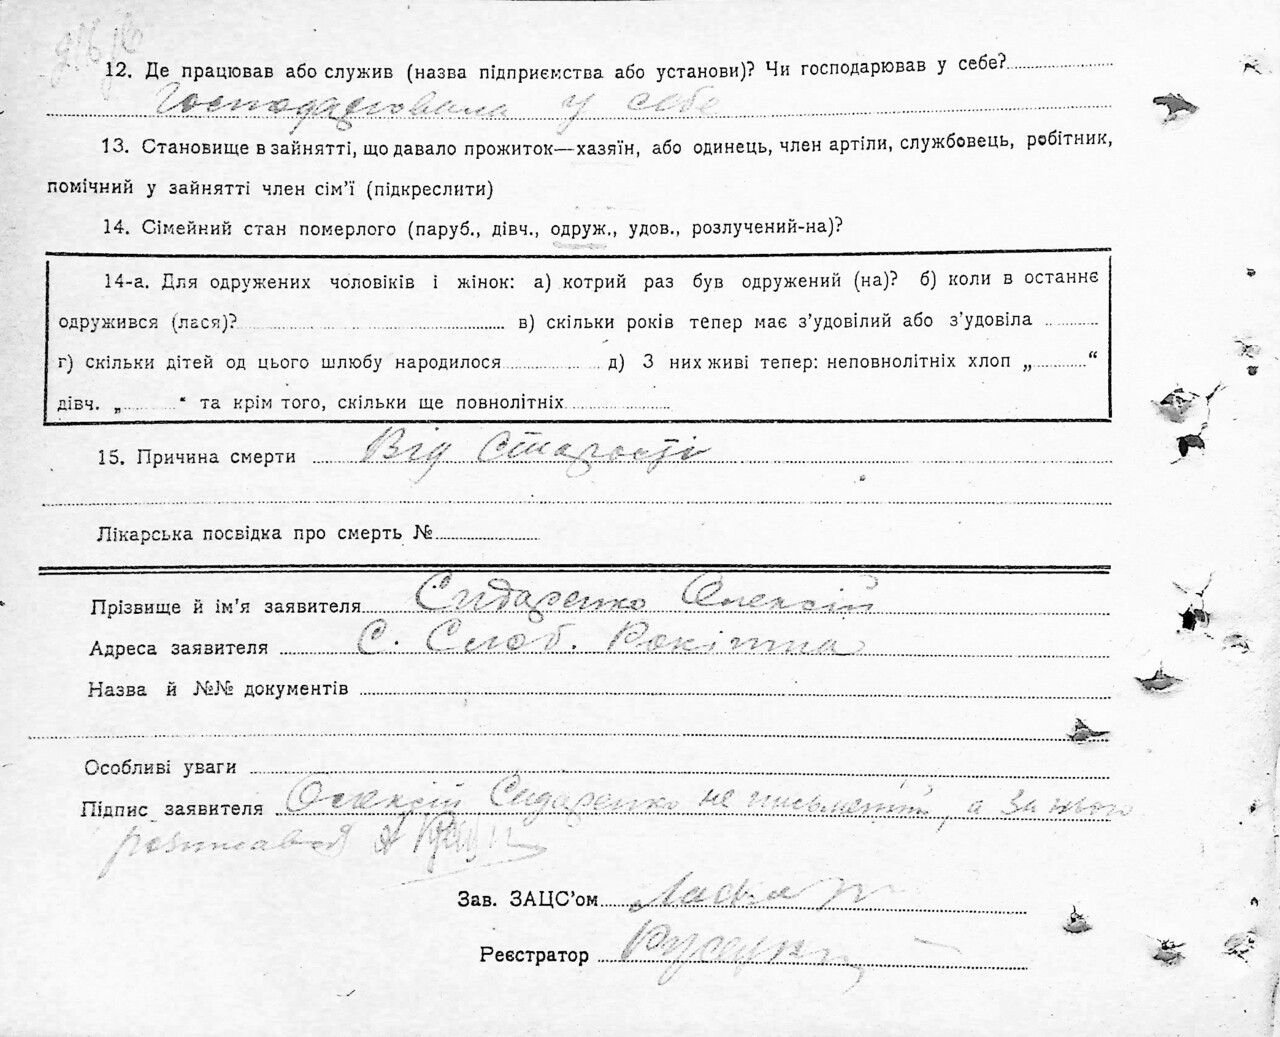 12. Де працював або служив (назва підприємства або установи)? Чи господарював у себе?
Господарювала у себе
13. Становище в зайнятті, що давало прожиток—хазяїн, або одинець, член артіли, службовець, робітник,
помічний у зайнятті член сім'ї (підкреслити)
14. Сімейний стан померлого (паруб., дівч., одруж., удов., розлучений-на)?
14-а. Для одружених чоловіків і жінок: а) котрий раз був одружений (на)? б) коли в останнє
одружився (лася)? в) скільки років тепер має з'удовілий або з'удовіла
г) скільки дітей од цього шлюбу народилося д) З них живі тепер: неповнолітніх хлоп „ “
дівч. „ “ та крім того, скільки ще повнолітніх
15. Причина смерти Від старості
Лікарська посвідка про смерть №
Прізвище й ім'я заявителя Сидаренко Олексій
Адреса заявителя С. Слоб. Рокітна
Назва й №№ документів
Особливі уваги
Підпис заявителя Олексій Сидаренко не письменій, а за нього
розписався А
Зав. ЗАЦС'ом
Реєстратор